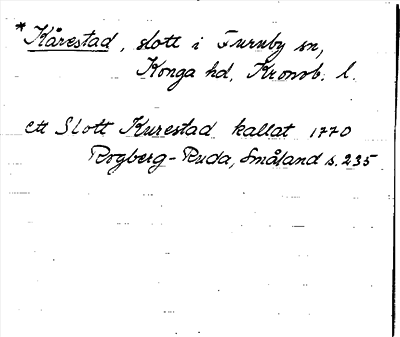 *Kårestad, slott i Furuby sn,
Konga hd, Kronob. l.
ett Slott Kurestad kallat 1770
Rogberg-Ruda, Småland s. 235